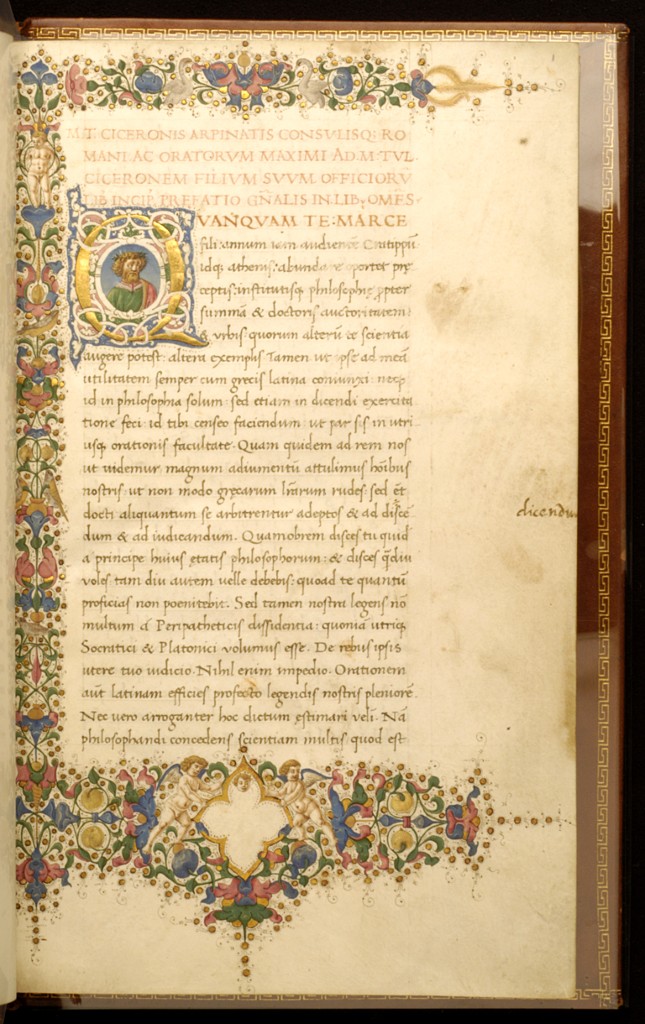 M. T. CICERONIS ARPINATIS CONSVLISQ: RO
MANI: AC ORATORVM MAXIMI AD. M. TVL.
CICERONEM FILIVM SVVM. OFFICIORV̄
LIB. INCIP. PREFATIO GN̄ALIS IN. LIB. OM̄ES.
QVANQVAM TE. MARCE
fili: annum iam audientē Cratippū
idq; athenis: abundare oportet prę
ceptis: institutisq; philosophię ꝓpter
summā & doctoris auctoritatem:
& vrbis quorum alterū te scientia
augere potest: altera exemplis Tamen ut ipse ad meā
utilitatem semper cum grecis latina coniunxi: neq;
id in philosophia solum: sed etiam in dicendi exercita
tione feci: id tibi censeo faciendum: ut par sis in utri
usq; orationis facultate. Quam quidem ad rem nos
ut uidemur magnum adiumentū attulimus hoībus
nostris. ut non modo gręcarum lr̄arum rudes: sed ēt
docti aliquantum se arbitrentur adeptos & ad discē
dum & ad iudicandum. Quamobrem disces tu quid
a principe huius etatis philosophorum: & disces q̄diu
voles tam diu autem uelle debebis: quoad te quantū
proficias non poenitebit. Sed tamen nostra legens nō
multum a Peripatheticis dissidentia: quoniā utriq;
Socratici & Platonici volumus esse. De rebus ipsis
utere tuo iudicio. Nihil enim impedio. Orationem
aūt latinam efficies profecto legendis nostris pleniorē.
Nec uero arroganter hoc dictum estimari veli. Nā
philosophandi concedens scientiam multis quod est
dicendum